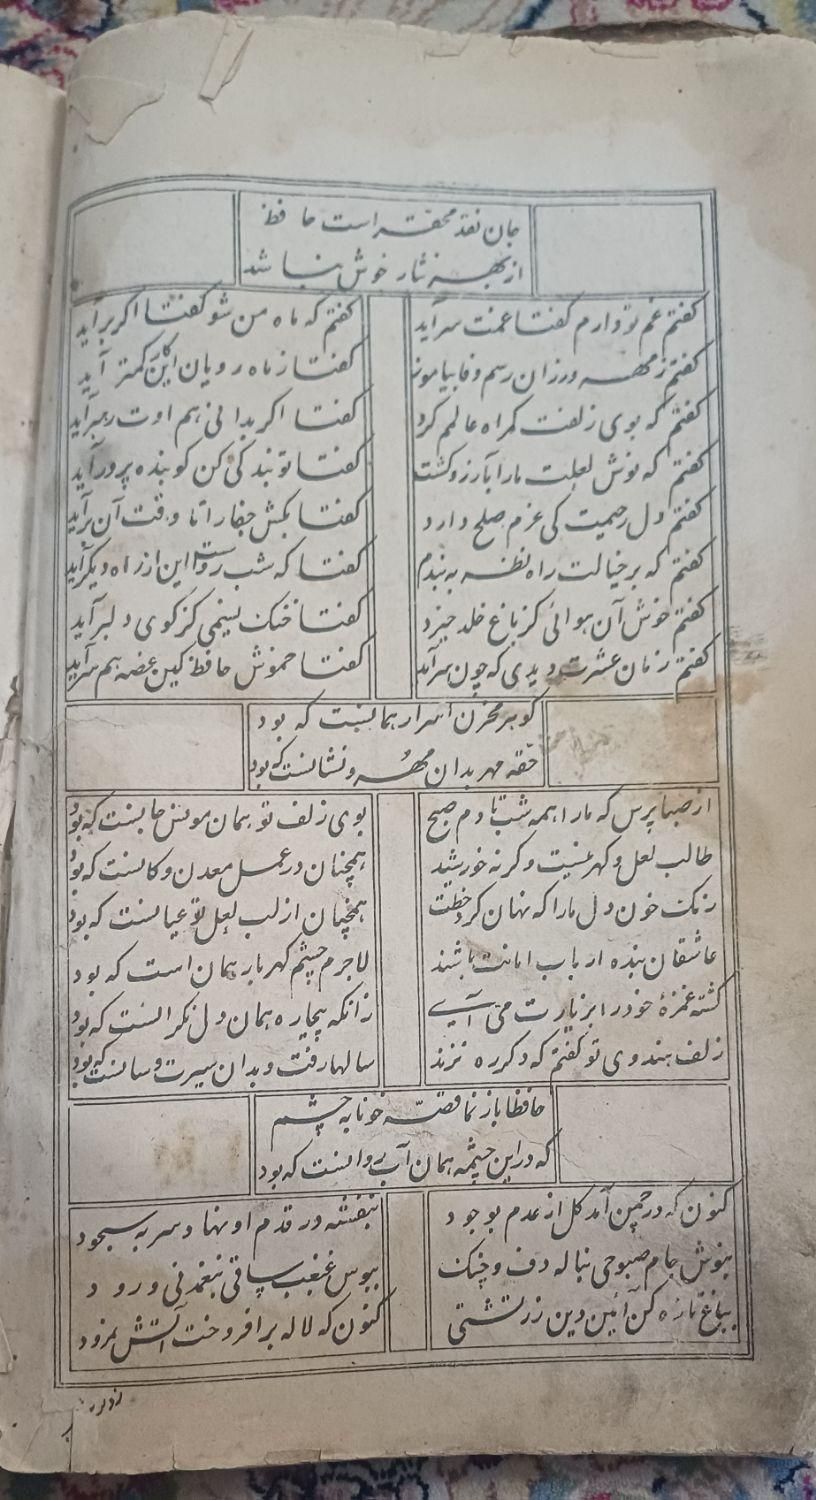 جان نقد محقر است حافظ
از بهر نثار خوش نباشد
گفتم غم تو دارم گفتا غمت سرآید گفتم که ماه من شو گفتا اگر برآید
گفتم ز مهر ورزان رسم وفا بیاموز گفتا ز ماه رویان این کار کمتر آید
گفتم که بوی زلفت گمراه عالمم کرد گفتا اگر بدانی هم اوت رهبر آید
گفتم که نوش لعلت ما را بآرزو کشت گفتا تو بندگی کن کو بنده پرور آید
گفتم دل رحیمت کی عزم صلح دارد گفتا بکش جفا را تا وقت آن برآید
گفتم که بر خیالت راه نظر به بندم گفتا که شب روست این از راه دیگر آید
گفتم خوش آن هوائی کز باغ خلد خیزد گفتا خنک نسیمی کز کوی دلبر آید
گفتم زمان عشرت دیدی که چون سرآمد گفتا خموش حافظ کین غصه هم سرآید
گوهر مخزن اسرار همانست که بود
حقه مهر بدان مهر و نشانست که بود
از صبا پرس که ما را همه شب تا دم صبح بوی زلف تو همان مونس جانست که بود
طالب لعل و گهر نیست وگرنه خورشید همچنان در عمل معدن و کانست که بود
رنگ خون دل ما را که نهان کرد خطت همچنان از لب لعل تو عیانست که بود
عاشقان بنده ارباب امانت باشند لاجرم چشم گهربار همان است که بود
کشته غمزهٔ خود را بزیارت می آیی زانکه بیچاره همان دل نگرانست که بود
زلف هندوی تو گفتم که دگر ره نزند سالها رفت و بدان سیرت و سانست که بود
حافظا باز نما قصّه خونابه چشم
که در این چشمه همان آب روانست که بود
کنون که در چمن آمد گل از عدم بوجود بنفشه در قدم او نهاد سر به سجود
بنوش جام صبوحی بناله دف و چنگ ببوس غبغب ساقی بنغمه نی و رود
بباغ تازه کن آئین دین زرتشتی کنون که لاله برافروخت آتش نمرود